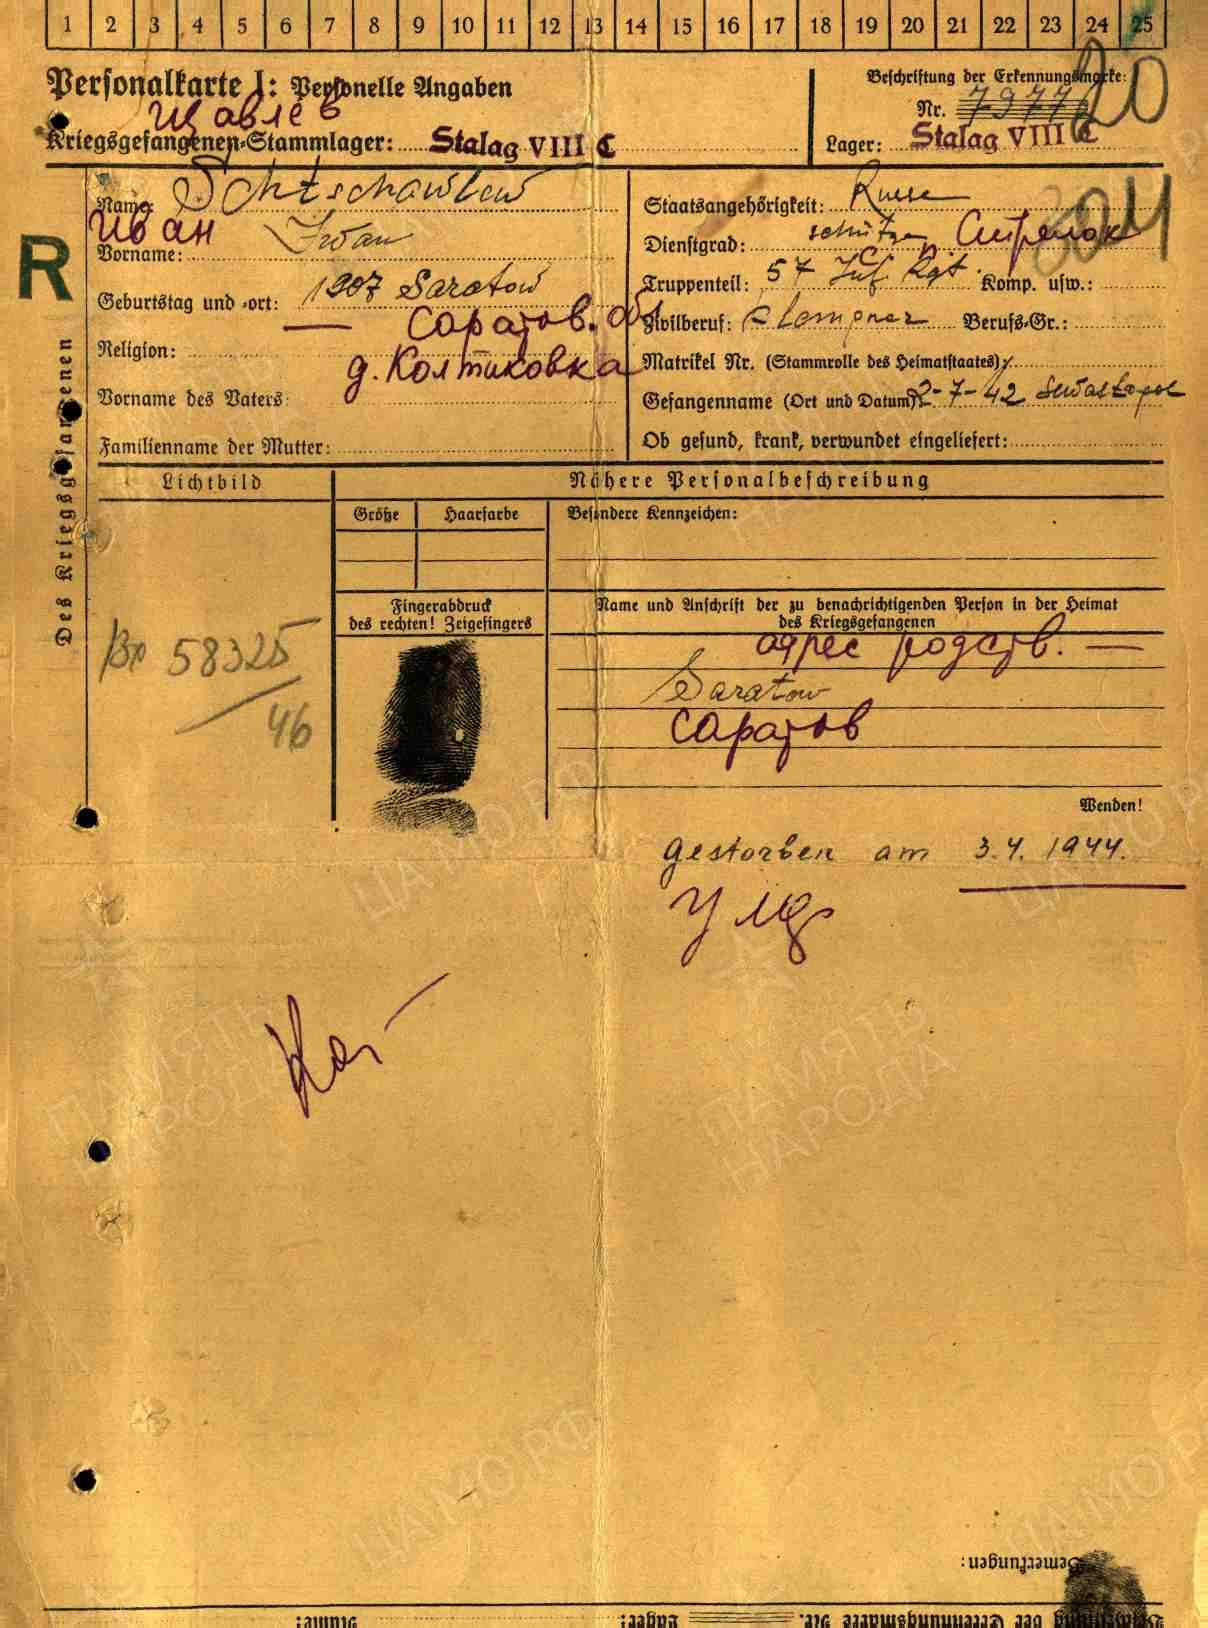 1 2 3 4 5 6 7 8 9 10 11 12 13 14 15 16 17 18 19 20 21 22 23 24 25
Personalkarte I: Personelle Angaben
Beschriftung der Erkennungsmarke:
Щавлев
Nr. 7977
20
Kriegsgefangenen-Stammlager: Stalag VIII C
Lager: Stalag VIII C
Name: Schtschawlew
Иван
Vorname: Iwan
Geburtstag und -ort: 1907 Saratow
— Саратов. обл
Religion:
д. Колтиковка
Vorname des Vaters:
Familienname der Mutter:
Staatsangehörigkeit: Russe
Dienstgrad: schütze Стрелок
Truppenteil: 57 Inf. Rgt. Komp. usw.:
сп
Zivilberuf: Klempner Berufs-Gr.:
Matrikel Nr. (Stammrolle des Heimatstaates):
Gefangenname (Ort und Datum): 2-7-42 Sewastopol
Ob gesund, krank, verwundet eingeliefert:
R
Des Kriegsgefangenen
Lichtbild
Nähere Personalbeschreibung
Größe
Haarfarbe
Besondere Kennzeichen:
Fingerabdruck
des rechten! Zeigefingers
Name und Anschrift der zu benachrichtigenden Person in der Heimat
des Kriegsgefangenen
адрес родств. —
Saratow
Саратов
Вх 58325
46
Wenden!
gestorben am 3.4.1944.
Bemerkungen:
Beschriftung der Erkennungsmarke Nr.
Lager:
Name:
ПАМЯТЬ
НАРОДА
ЦАМО.РФ
ПАМЯТЬ
НАРОДА
ЦАМО.РФ